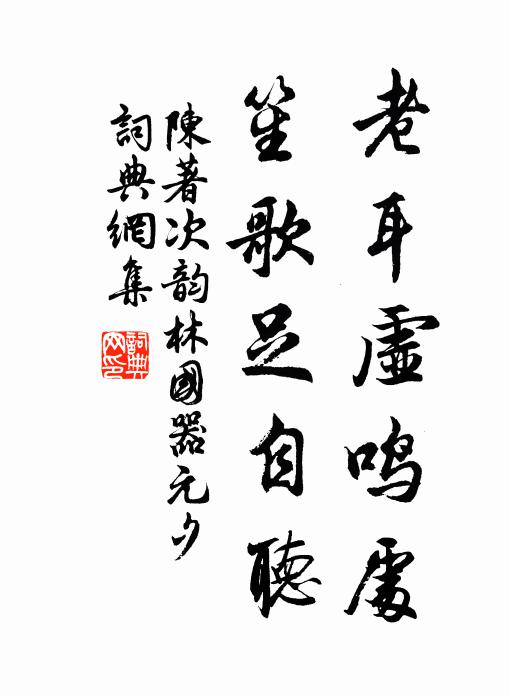 老耳虛鳴處
笙歌足自聽
陳著次韵林國器元夕
詞典網集
詞典网印